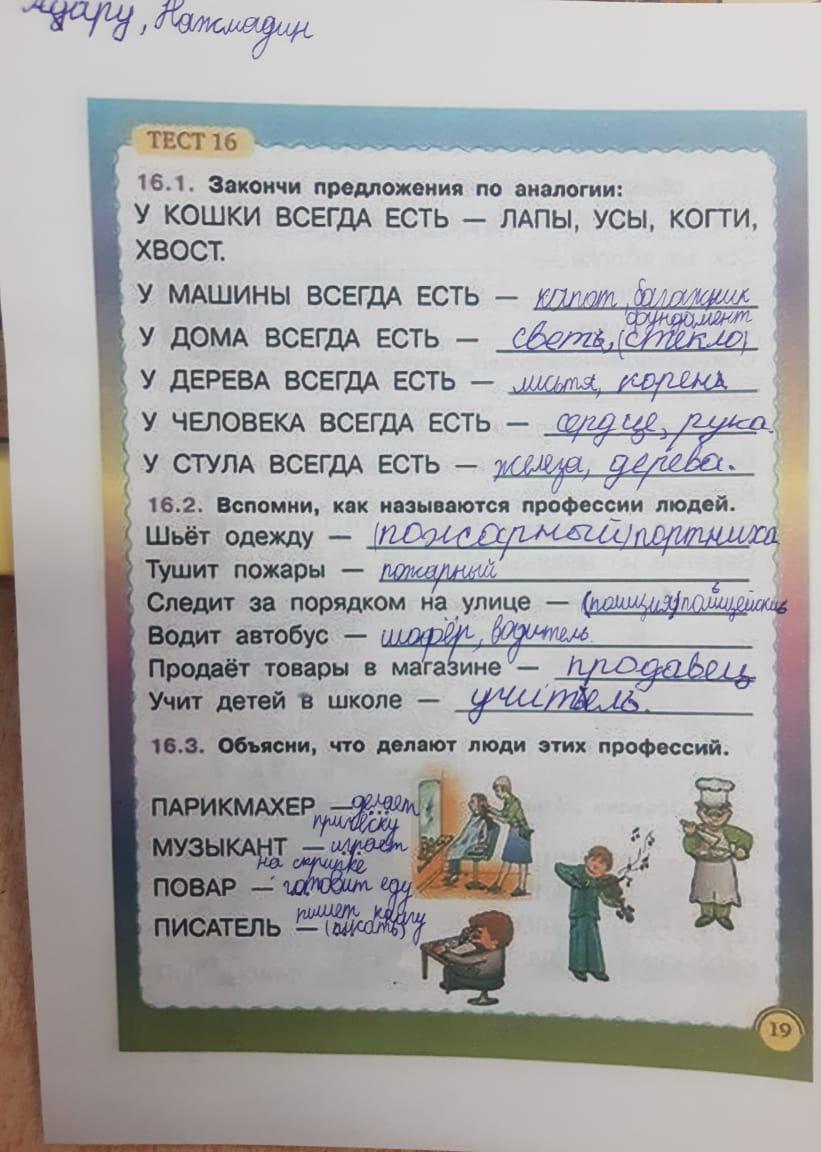 Адару, Нажмадин
ТЕСТ 16
16.1. Закончи предложения по аналогии:
У КОШКИ ВСЕГДА ЕСТЬ — ЛАПЫ, УСЫ, КОГТИ,
ХВОСТ.
У МАШИНЫ ВСЕГДА ЕСТЬ — капот, багажник
фундамент
У ДОМА ВСЕГДА ЕСТЬ — светь, (стекло)
У ДЕРЕВА ВСЕГДА ЕСТЬ — листья, корень
У ЧЕЛОВЕКА ВСЕГДА ЕСТЬ — сердце, рука.
У СТУЛА ВСЕГДА ЕСТЬ — железа, дерева.
16.2. Вспомни, как называются профессии людей.
Шьёт одежду — (пожарный) портниха
Тушит пожары — пожарный
Следит за порядком на улице — (полиция) полицейский
Водит автобус — шофёр, водитель
Продаёт товары в магазине — продавец
Учит детей в школе — учитель.
16.3. Объясни, что делают люди этих профессий.
ПАРИКМАХЕР — делает
причёску
МУЗЫКАНТ — играет
на скрипке
ПОВАР — готовит еду
пишет книгу
ПИСАТЕЛЬ — (писать)
19